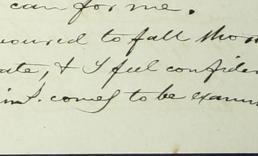 can for me.
oured to fall thor
ate, & I feel confiden
in S. comes to be exami